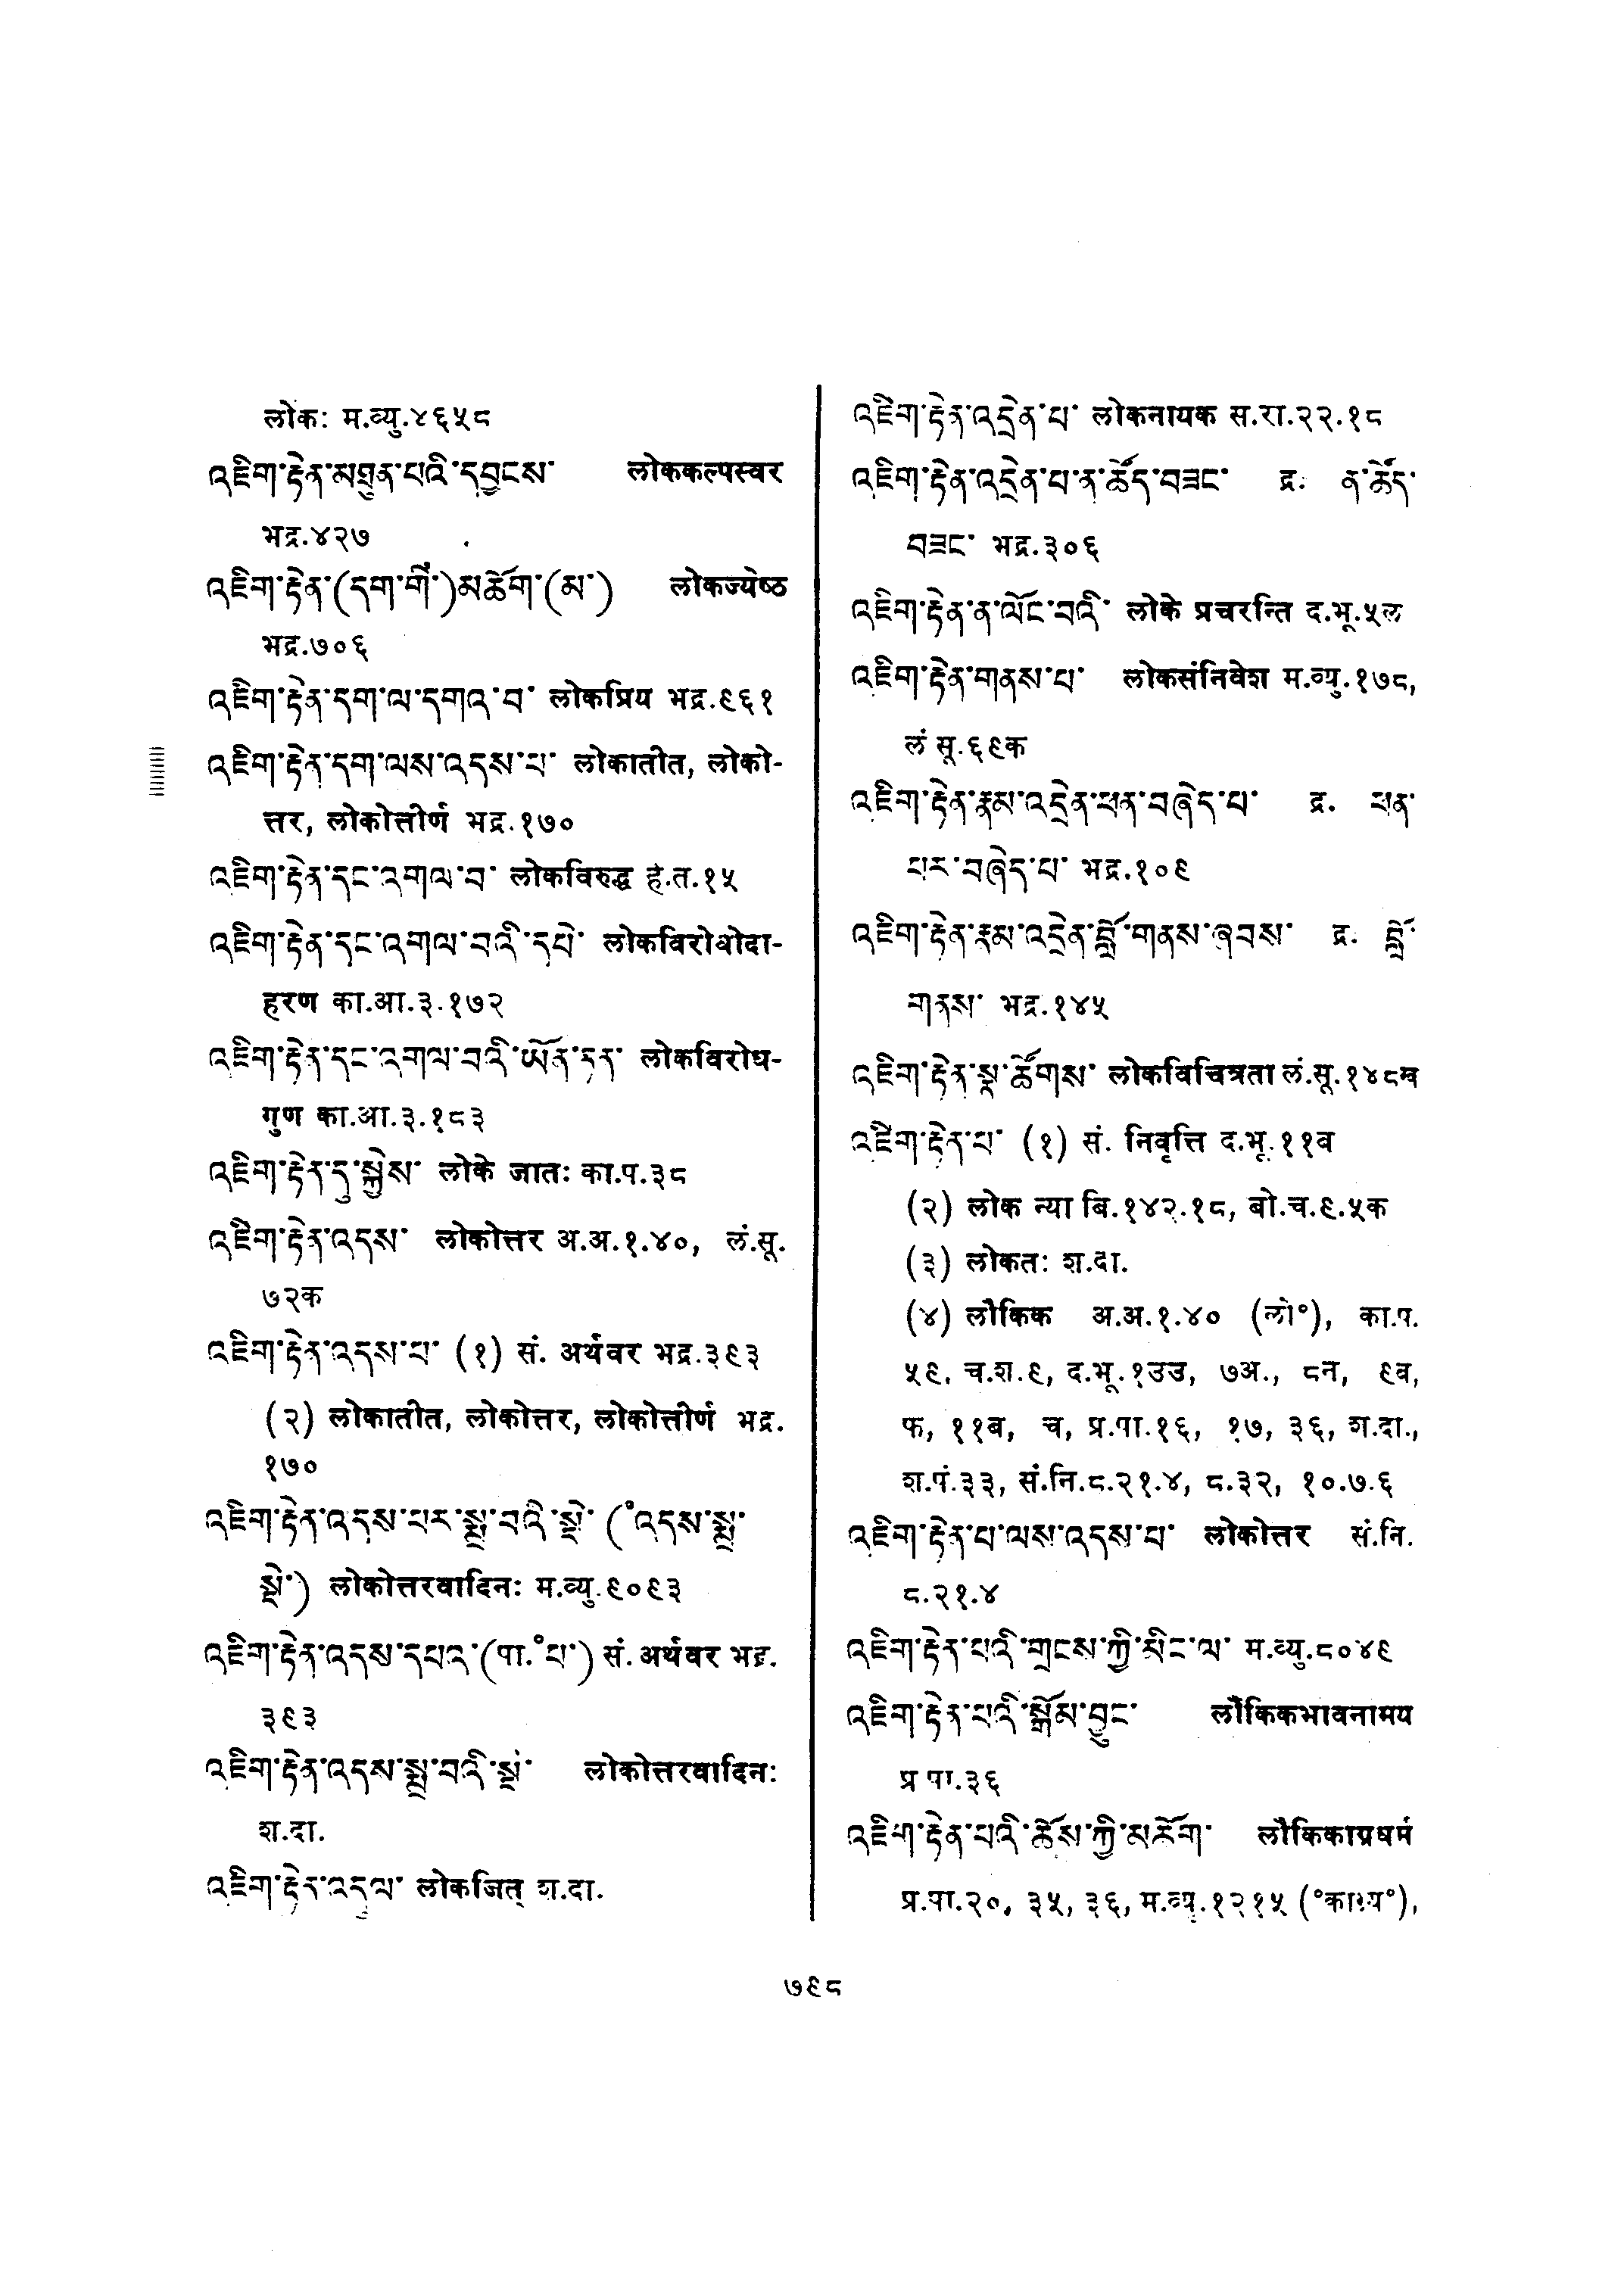 लोकः म.व्यु.४६५८
འཇིག་རྟེན་མཐུན་པའི་དབྱངས་ लोककल्पस्वर
भद्र.४२७
འཇིག་རྟེན་(དག་གི་)མཆོག་(མ་) लोकज्येष्ठ
भद्र.७०६
འཇིག་རྟེན་དག་ལ་དགའ་བ་ लोकप्रिय भद्र.९६१
འཇིག་རྟེན་དག་ལས་འདས་པ་ लोकातीत, लोको-
त्तर, लोकोत्तीर्ण भद्र.१७०
འཇིག་རྟེན་དང་འགལ་བ་ लोकविरुद्ध हे.त.१५
འཇིག་རྟེན་དང་འགལ་བའི་དཔེ་ लोकविरोधोदा-
हरण का.आ.३.१७२
འཇིག་རྟེན་དང་འགལ་བའི་ཡོན་ཏན་ लोकविरोध-
गुण का.आ.३.१८३
འཇིག་རྟེན་དུ་སྐྱེས་ लोके जातः का.प.३८
འཇིག་རྟེན་འདས་ लोकोत्तर अ.अ.१.४०, लं.सू.
७२क
འཇིག་རྟེན་འདས་པ་ (१) सं. अर्थवर भद्र.३९३
(२) लोकातीत, लोकोत्तर, लोकोत्तीर्ण भद्र.
१७०
འཇིག་རྟེན་འདས་པར་སྨྲ་བའི་སྡེ་ (°འདས་སྨྲ་
སྡེ་) लोकोत्तरवादिनः म.व्यु.९०९३
འཇིག་རྟེན་འདས་དཔའ་(पा.°པ་) सं. अर्थवर भद्र.
३९३
འཇིག་རྟེན་འདས་སྨྲ་བའི་སྡེ་ लोकोत्तरवादिनः
श.दा.
འཇིག་རྟེན་འདུལ་ लोकजित् श.दा.
འཇིག་རྟེན་འདྲེན་པ་ लोकनायक स.रा.२२.१८
འཇིག་རྟེན་འདྲེན་པ་ན་ཚོད་བཟང་ द्र. ན་ཚོད་
བཟང་ भद्र.३०६
འཇིག་རྟེན་ན་ལོང་བའི་ लोके प्रचरन्ति द.भू.५ल
འཇིག་རྟེན་གནས་པ་ लोकसंनिवेश म.व्यु.१७८,
लं सू.६९क
འཇིག་རྟེན་རྣམ་འདྲེན་ཕན་བཞེད་པ་ द्र. ཕན་
པར་བཞེད་པ་ भद्र.१०९
འཇིག་རྟེན་རྣམ་འདྲེན་བློ་གནས་ཞབས་ द्र. བློ་
གནས་ भद्र.१४५
འཇིག་རྟེན་སྣ་ཚོགས་ लोकविचित्रता लं.सू.१४८ख
འཇིག་རྟེན་པ་ (१) सं. निवृत्ति द.भू.११व
(२) लोक न्या बि.१४२.१८, बो.च.९.५क
(३) लोकतः श.दा.
(४) लौकिक अ.अ.१.४० (लो°), का.प.
५९, च.श.९, द.भू.१उउ, ७अ., ८न, ९व,
फ, ११ब, च, प्र.पा.१६, १७, ३६, श.दा.,
श.पं.३३, सं.नि.८.२१.४, ८.३२, १०.७.६
འཇིག་རྟེན་པ་ལས་འདས་པ་ लोकोत्तर सं.नि.
८.२१.४
འཇིག་རྟེན་པའི་གྲངས་ཀྱི་མིང་ལ་ म.व्यु.८०४९
འཇིག་རྟེན་པའི་སྒོམ་བྱུང་ लौकिकभावनामय
प्र पा.३६
འཇིག་རྟེན་པའི་ཆོས་ཀྱི་མཆོག་ लौकिकाग्रधर्म
प्र.पा.२०, ३५, ३६, म.व्यु.१२१५ (°काग्र्य°),
७९८